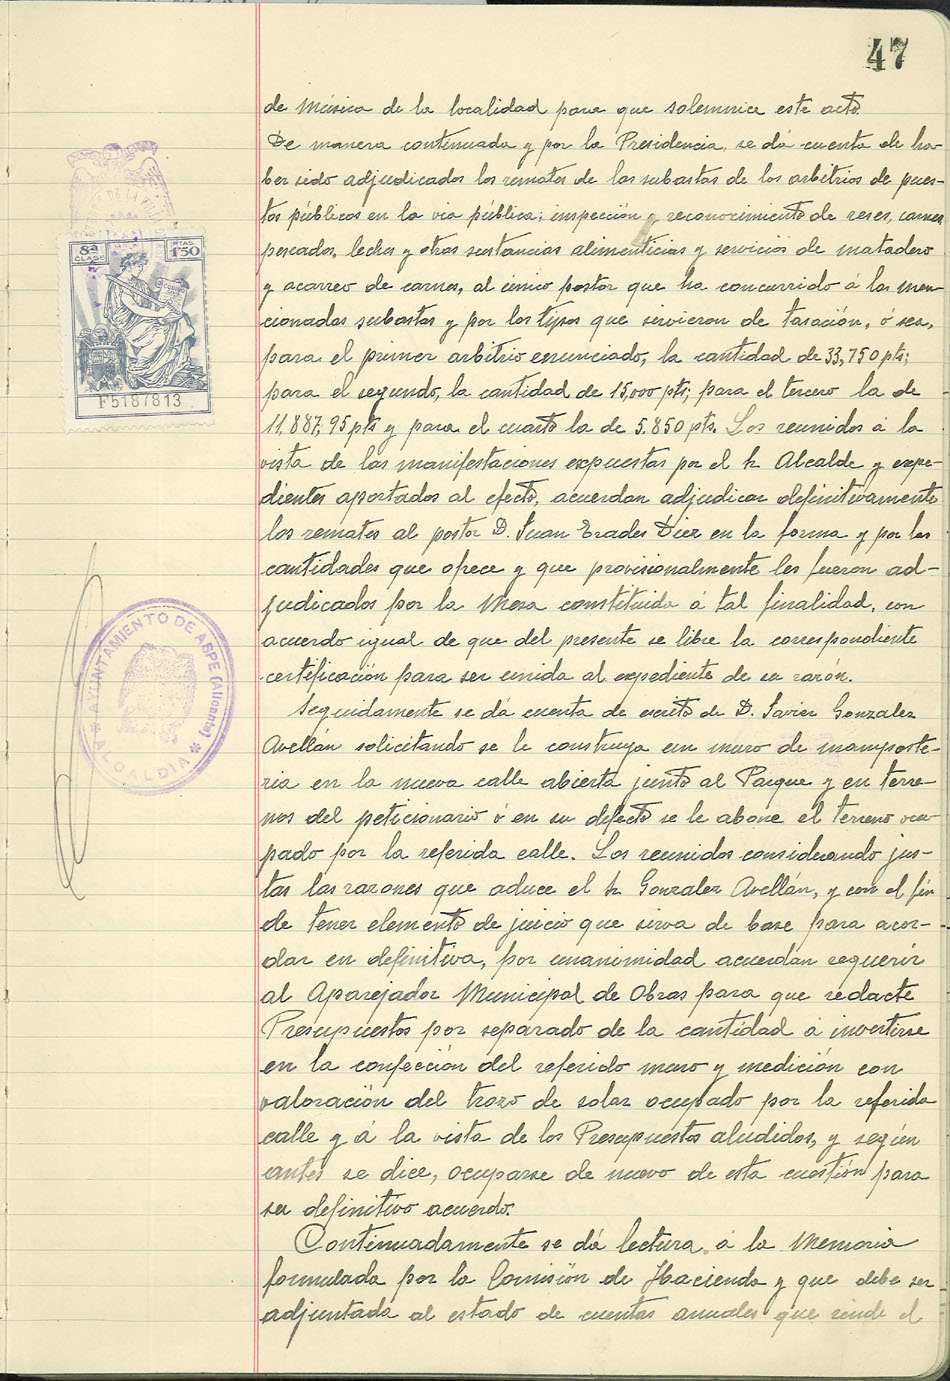 47
de Música de la localidad para que solemnice este acto.
De manera continuada y por la Presidencia, se dá cuenta de ha-
ber sido adjudicados los remates de las subastas de los arbitrios de pues-
tos públicos en la via pública; inspección y reconocimiento de reses, carnes,
pescados, leches y otras sustancias alimenticias y servicios de matadero
y acarreo de carnes, al único postor que ha concurrido á las men-
cionadas subastas y por los tipos que sirvieron de tasación, ó sea,
para el primer arbitrio enunciado, la cantidad de 33,750 pts;
para el segundo, la cantidad de 15,000 pts; para el tercero la de
11,887,95 pts y para el cuarto la de 5.850 pts. Los reunidos á la
vista de las manifestaciones expuestas por el Sr Alcalde y expe-
dientes aportados al efecto, acuerdan adjudicar definitivamente
los remates al postor D. Juan Erades Diez en la forma y por las
cantidades que ofrece y que provisionalmente les fueron ad-
judicados por la Mesa constituida á tal finalidad, con
acuerdo igual de que del presente se libre la correspondiente
certificación para ser unida al expediente de su razón.
Seguidamente se dá cuenta de escrito de D. Javier Gonzalez
Avellán solicitando se le construya un muro de mamposte-
ria en la nueva calle abierta junto al Parque y en terre-
nos del peticionario ó en su defecto se le abone el terreno ocu-
pado por la referida calle. Los reunidos considerando jus-
tas las razones que aduce el Sr Gonzalez Avellán, y con el fin
de tener elemento de juicio que sirva de base para acor-
dar en definitiva, por unanimidad acuerdan requerir
al Aparejador Municipal de Obras para que redacte
Presupuestos por separado de la cantidad á invertirse
en la confección del referido muro y medición con
valoración del trozo de solar ocupado por la referida
calle y á la vista de los Presupuestos aludidos, y según
antes se dice, ocuparse de nuevo de esta cuestión para
su definitivo acuerdo.
Continuadamente se dá lectura á la Memoria
formulada por la Comisión de Hacienda y que debe ser
adjuntada al estado de cuentas anuales que rinde el
8ª CLASE
PTAS. 1'50
F5187813
AYUNTAMIENTO DE ASPE (Alicante)
* ALCALDIA *